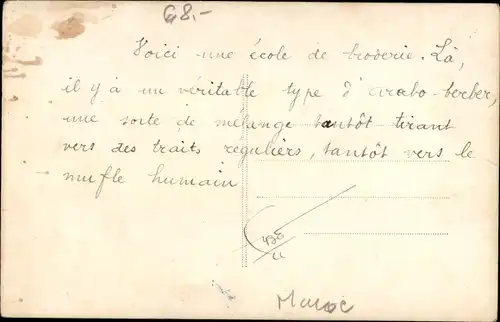 68.-
Voici une école de broderie. Là,
il y a un véritable type d'arabo-berber,
une sorte de mélange tantôt tirant
vers des traits reguliers, tantôt vers le
mufle humain
Maroc